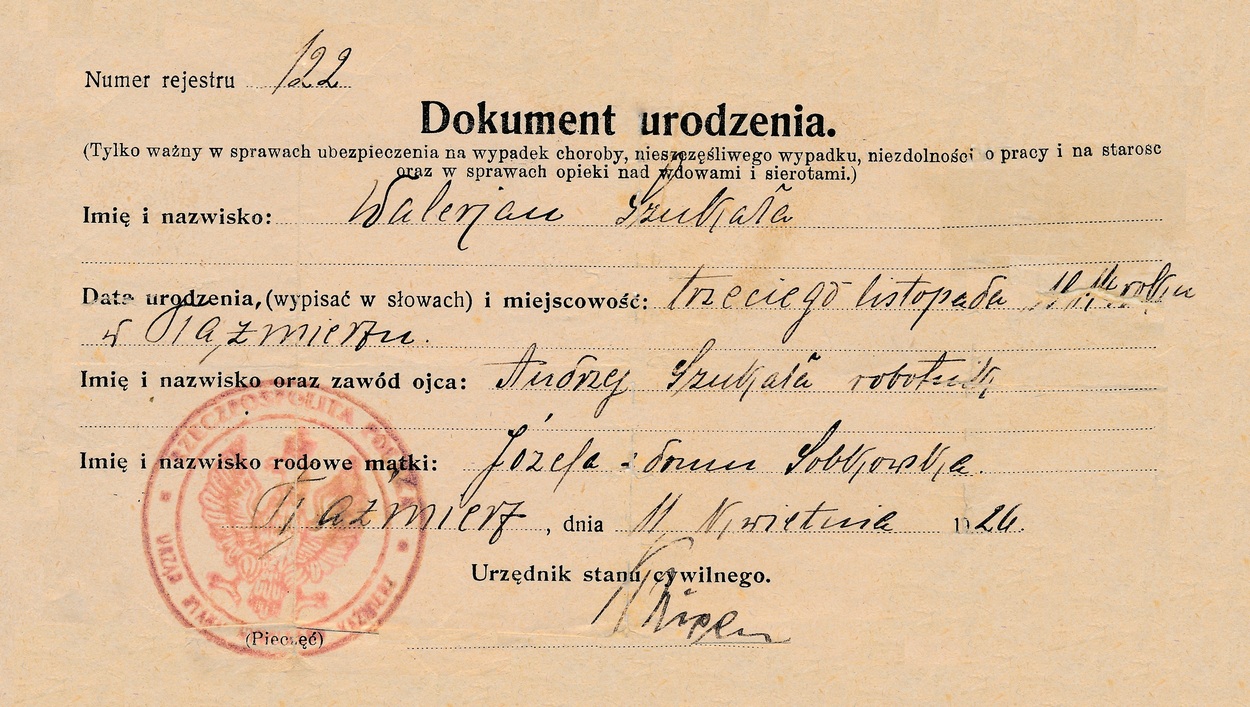 Numer rejestru 122
Dokument urodzenia.
(Tylko ważny w sprawach ubezpieczenia na wypadek choroby, nieszczęśliwego wypadku, niezdolności o pracy i na starosc
oraz w sprawach opieki nad wdowami i sierotami.)
Imię i nazwisko: Walerjan Szukała
Data urodzenia, (wypisać w słowach) i miejscowość: trzeciego listopada roku
w Kaźmierzu.
Imię i nazwisko oraz zawód ojca: Andrzej Szukała robotnik
Imię i nazwisko rodowe matki: Józefa z domu Sobkowska.
Kaźmierz, dnia 11 Kwietnia 1926.
Urzędnik stanu cywilnego.
(Pieczęć)
RZECZPOSPOLITA POLSKA
URZĄD STANU KAŹMIERZ